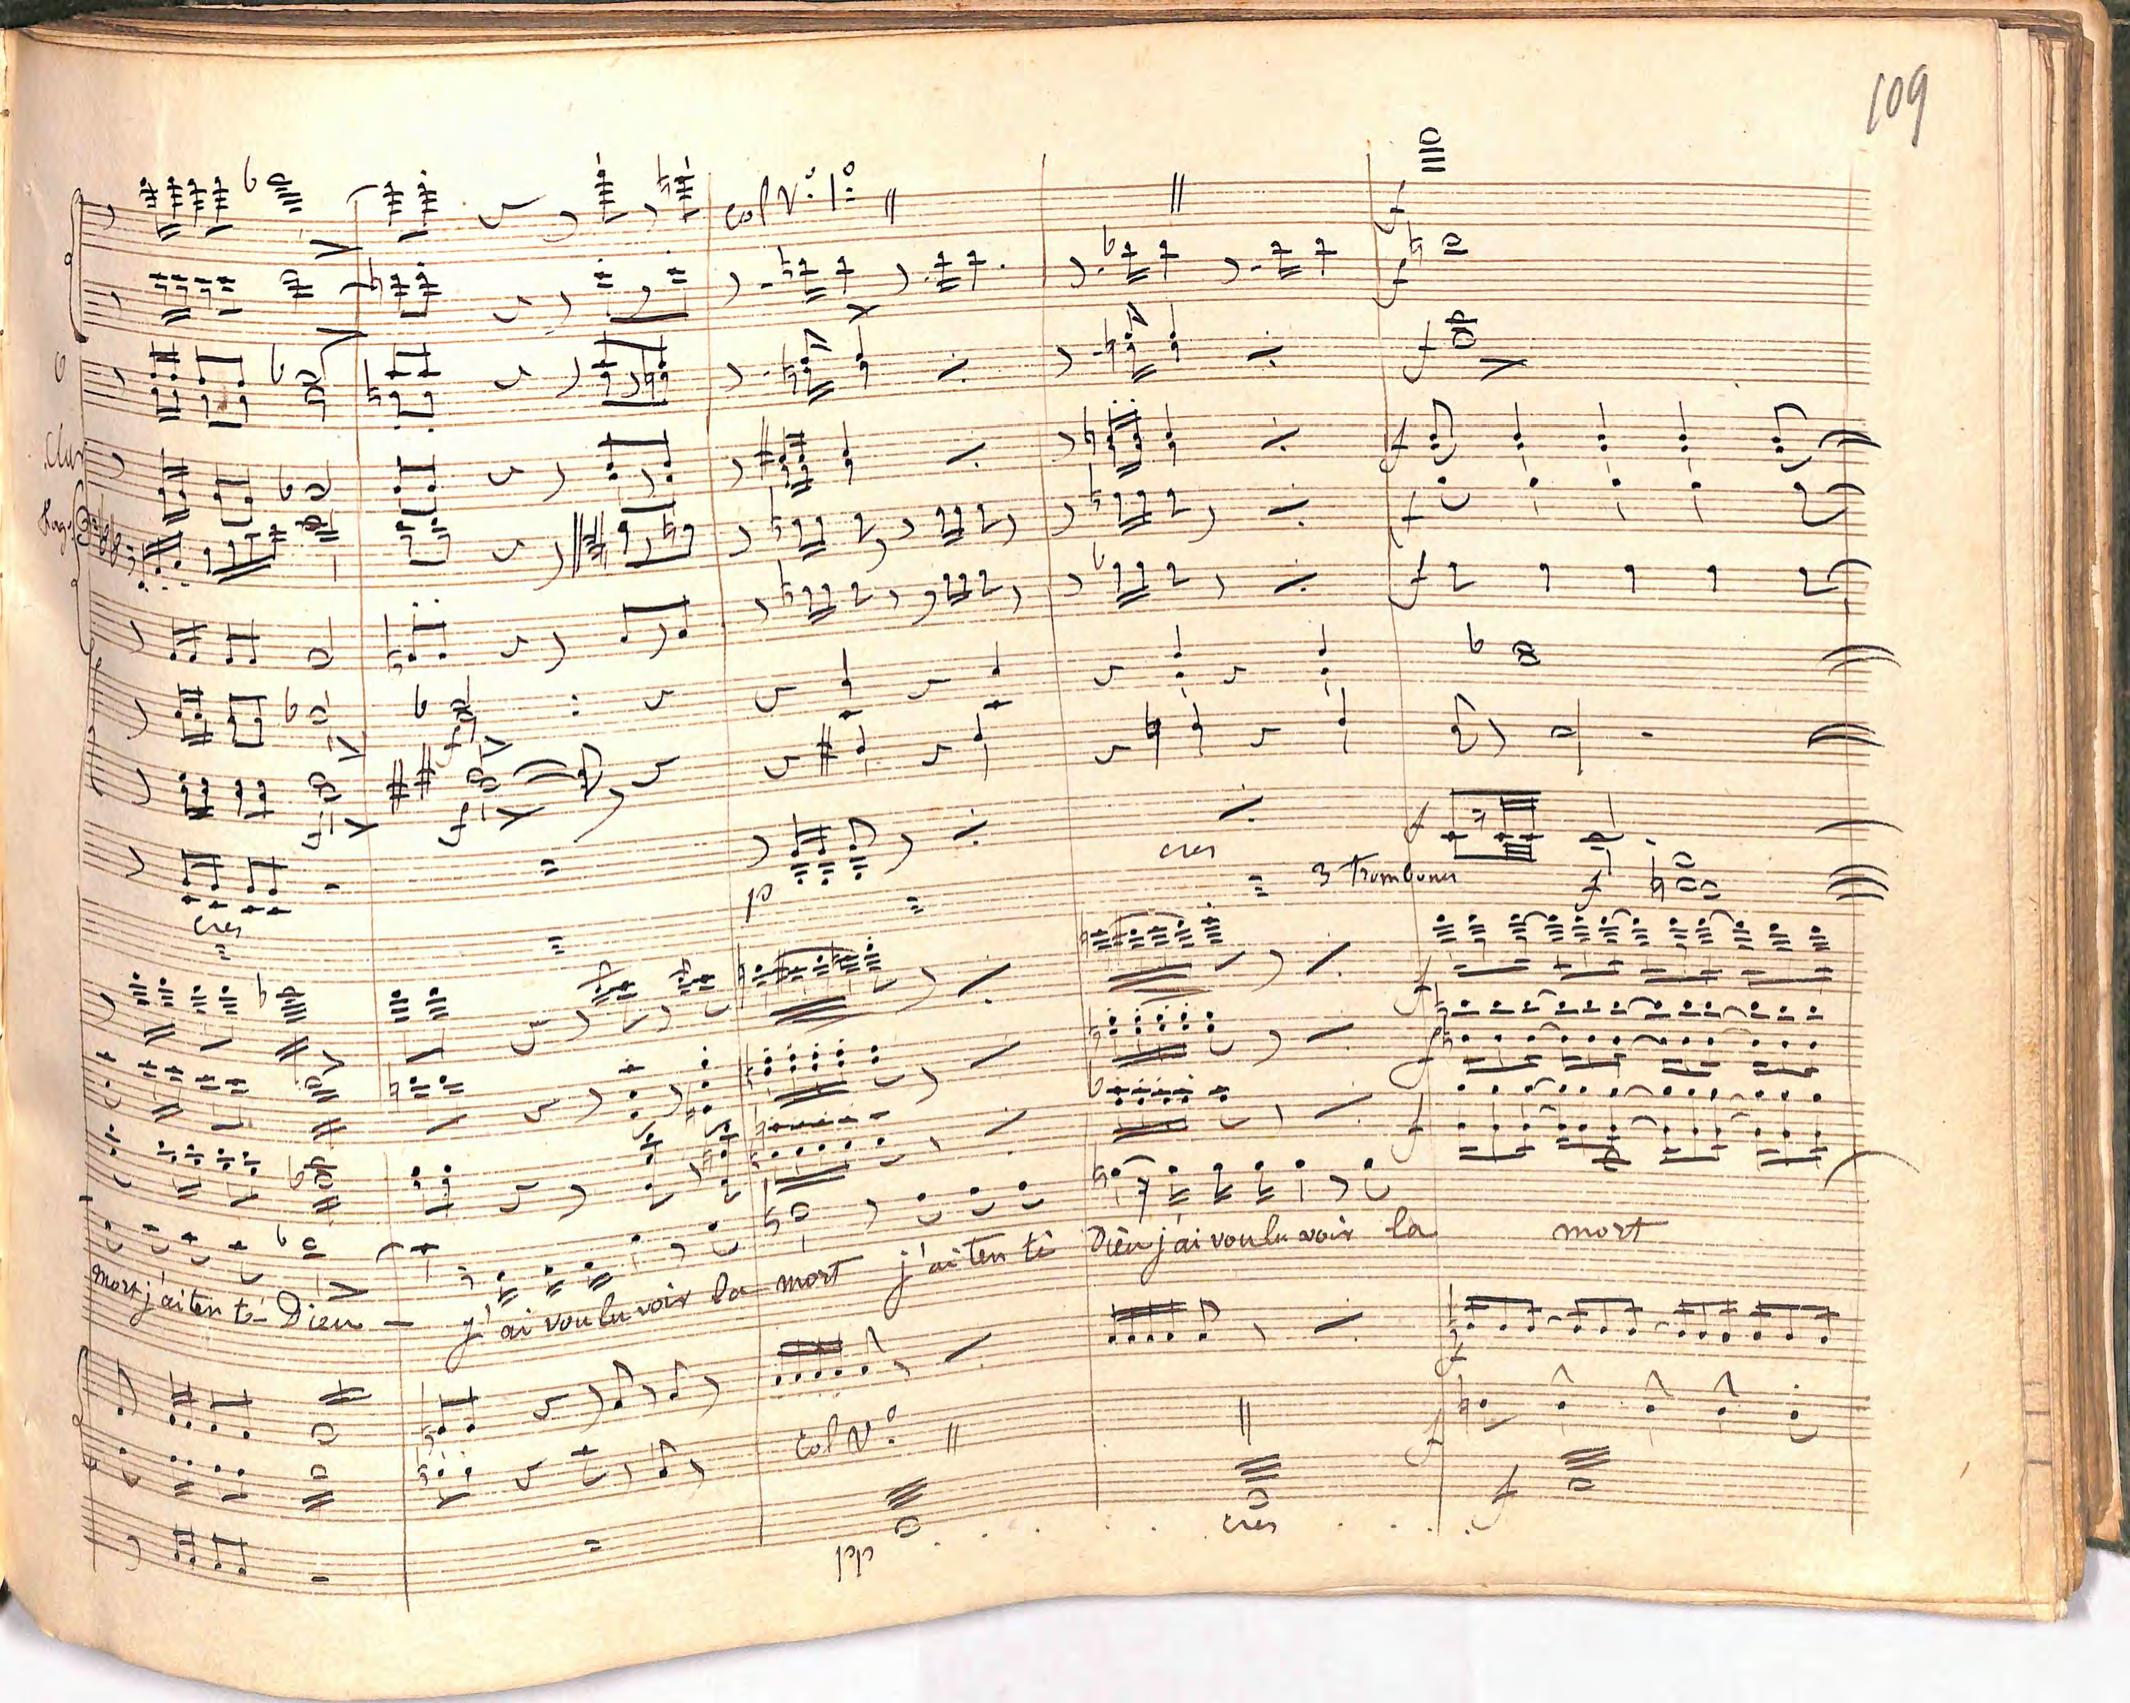 109
col V.º 1º
f
f
O
f
Clar
f
Fag.
f
f
f
f
f
cres
3 Trombones
f
p
cres
f
f
f
mort j'ai ten té Dieu — j'ai voulu voir la mort j'ai ten té Dieu j'ai voulu voir la mort
f
col V.º
f
f
cres
pp